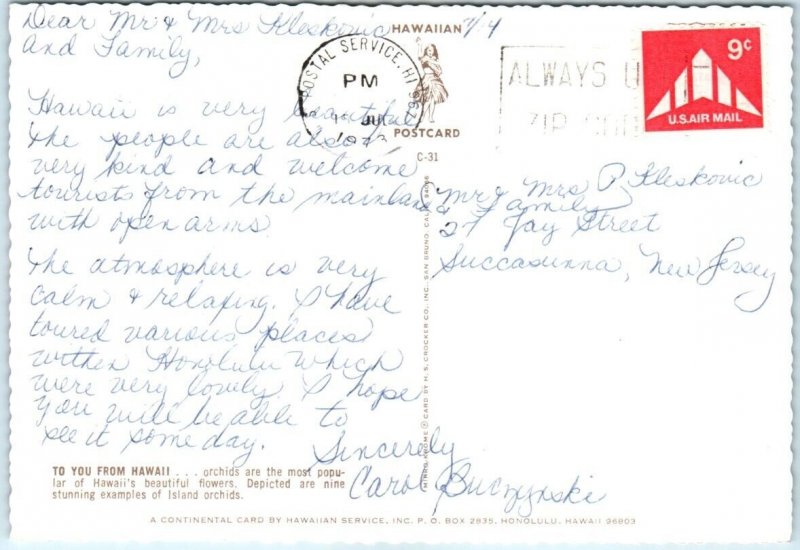 Dear Mr & Mrs Kleskovic 7/14
and Family,
Hawaii is very beautiful.
The people are also
very kind and welcome
tourists from the mainland
with open arms.
The atmosphere is very
calm & relaxing. I have
toured various places
within Honolulu which
were very lovely. I hope
you will be able to
see it some day.
Sincerely
Carol Buczynski
TO YOU FROM HAWAII . . . orchids are the most popu-
lar of Hawaii's beautiful flowers. Depicted are nine
stunning examples of Island orchids.
HAWAIIAN
POSTCARD
C-31
POSTAL SERVICE, HI
PM
ALWAYS U
ZIP CODE
9¢
U.S. AIR MAIL
Mr & Mrs P. Kleskovic
& Family
27 Jay Street
Succasunna, New Jersey
MIRRO-KROME ® CARD BY H. S. CROCKER CO., INC. SAN BRUNO, CALIF. 94066
A CONTINENTAL CARD BY HAWAIIAN SERVICE, INC. P. O. BOX 2835, HONOLULU, HAWAII 96803